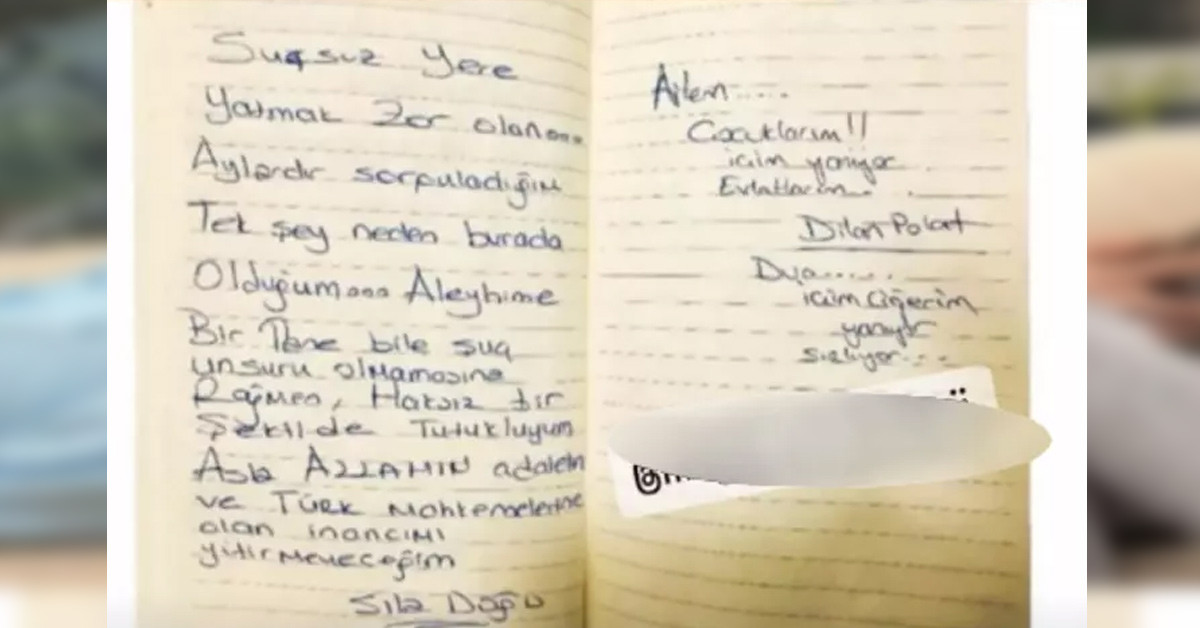 Suçsuz Yere
Yatmak Zor olan...
Aylardır sorguladığım
Tek şey neden burada
Olduğum... Aleyhime
Bir Tane bile suç
unsuru olmamasına
Rağmen, Haksız bir
Şekilde Tutukluyum
Asla ALLAHIN adaletin
ve Türk Mahkemelerine
olan inancımı
yitirmeyeceğim
Sıla Doğu
Ailem.....
Çocuklarım!!
içim yanıyor
Evlatlarım..
Dilan Polat
Dua.....
içim Ciğerim
yanıyor
Sızlıyor...